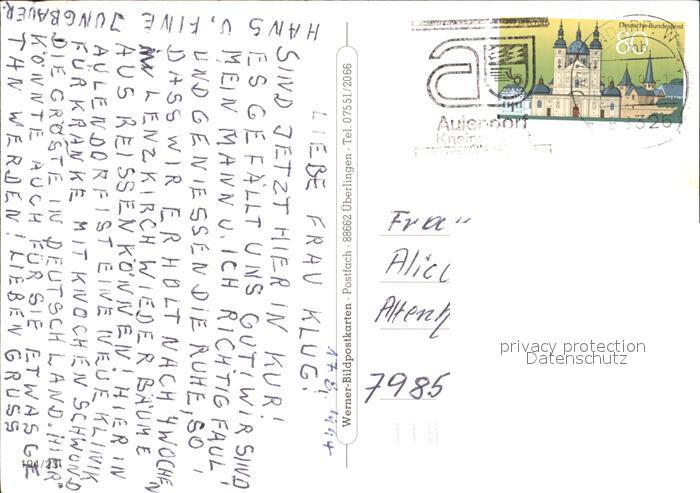 17.8.1994
LIEBE FRAU KLUG!
SIND JETZT HIER IN KUR!
ES GEFÄLLT UNS GUT! WIR SIND
MEIN MANN U. ICH RICHTIG FAUL!
UND GENIESSEN DIE RUHE, SO!
DASS WIR ERHOLT NACH 4 WOCHEN
IN LENZKIRCH WIEDER BÄUME
AUS REISSEN KÖNNEN! HIER IN
AULENDORF IST EINE NEUE KLINIK
FÜR KRANKE MIT KNOCHENSCHWUND
DIE GRÖSTE IN DEUTSCHLAND. HIER
KÖNNTE AUCH FÜR SIE ETWAS GE
TAN WERDEN! LIEBEN GRUSS
HANS U. FINE JUNGBAUER.
194/23
Werner-Bildpostkarten · Postfach · 88662 Überlingen · Tel. 07551/2066
Aulendorf
Deutsche Bundespost
80
Frau
Altenh
7985
privacy protection
Datenschutz